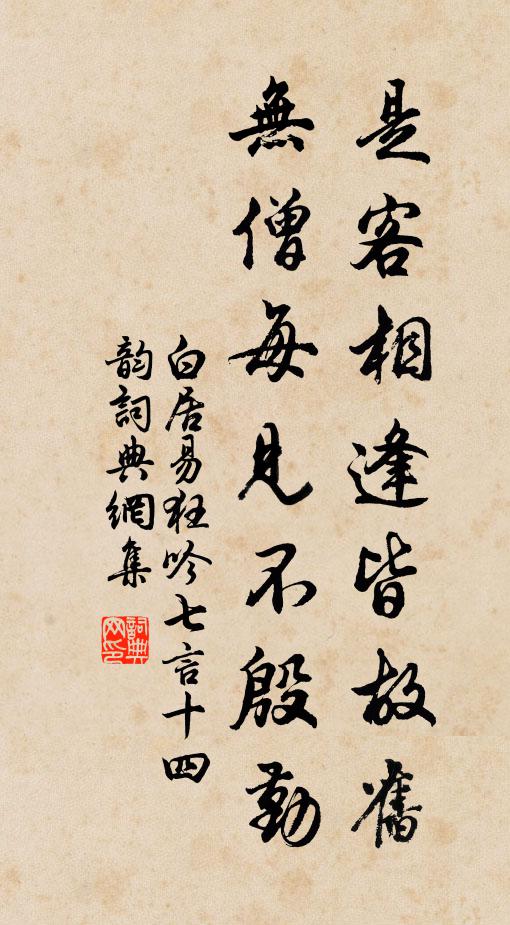 是客相逢皆故舊
無僧每見不殷勤
白居易狂吟七言十四
韵詞典網集
詞典网印